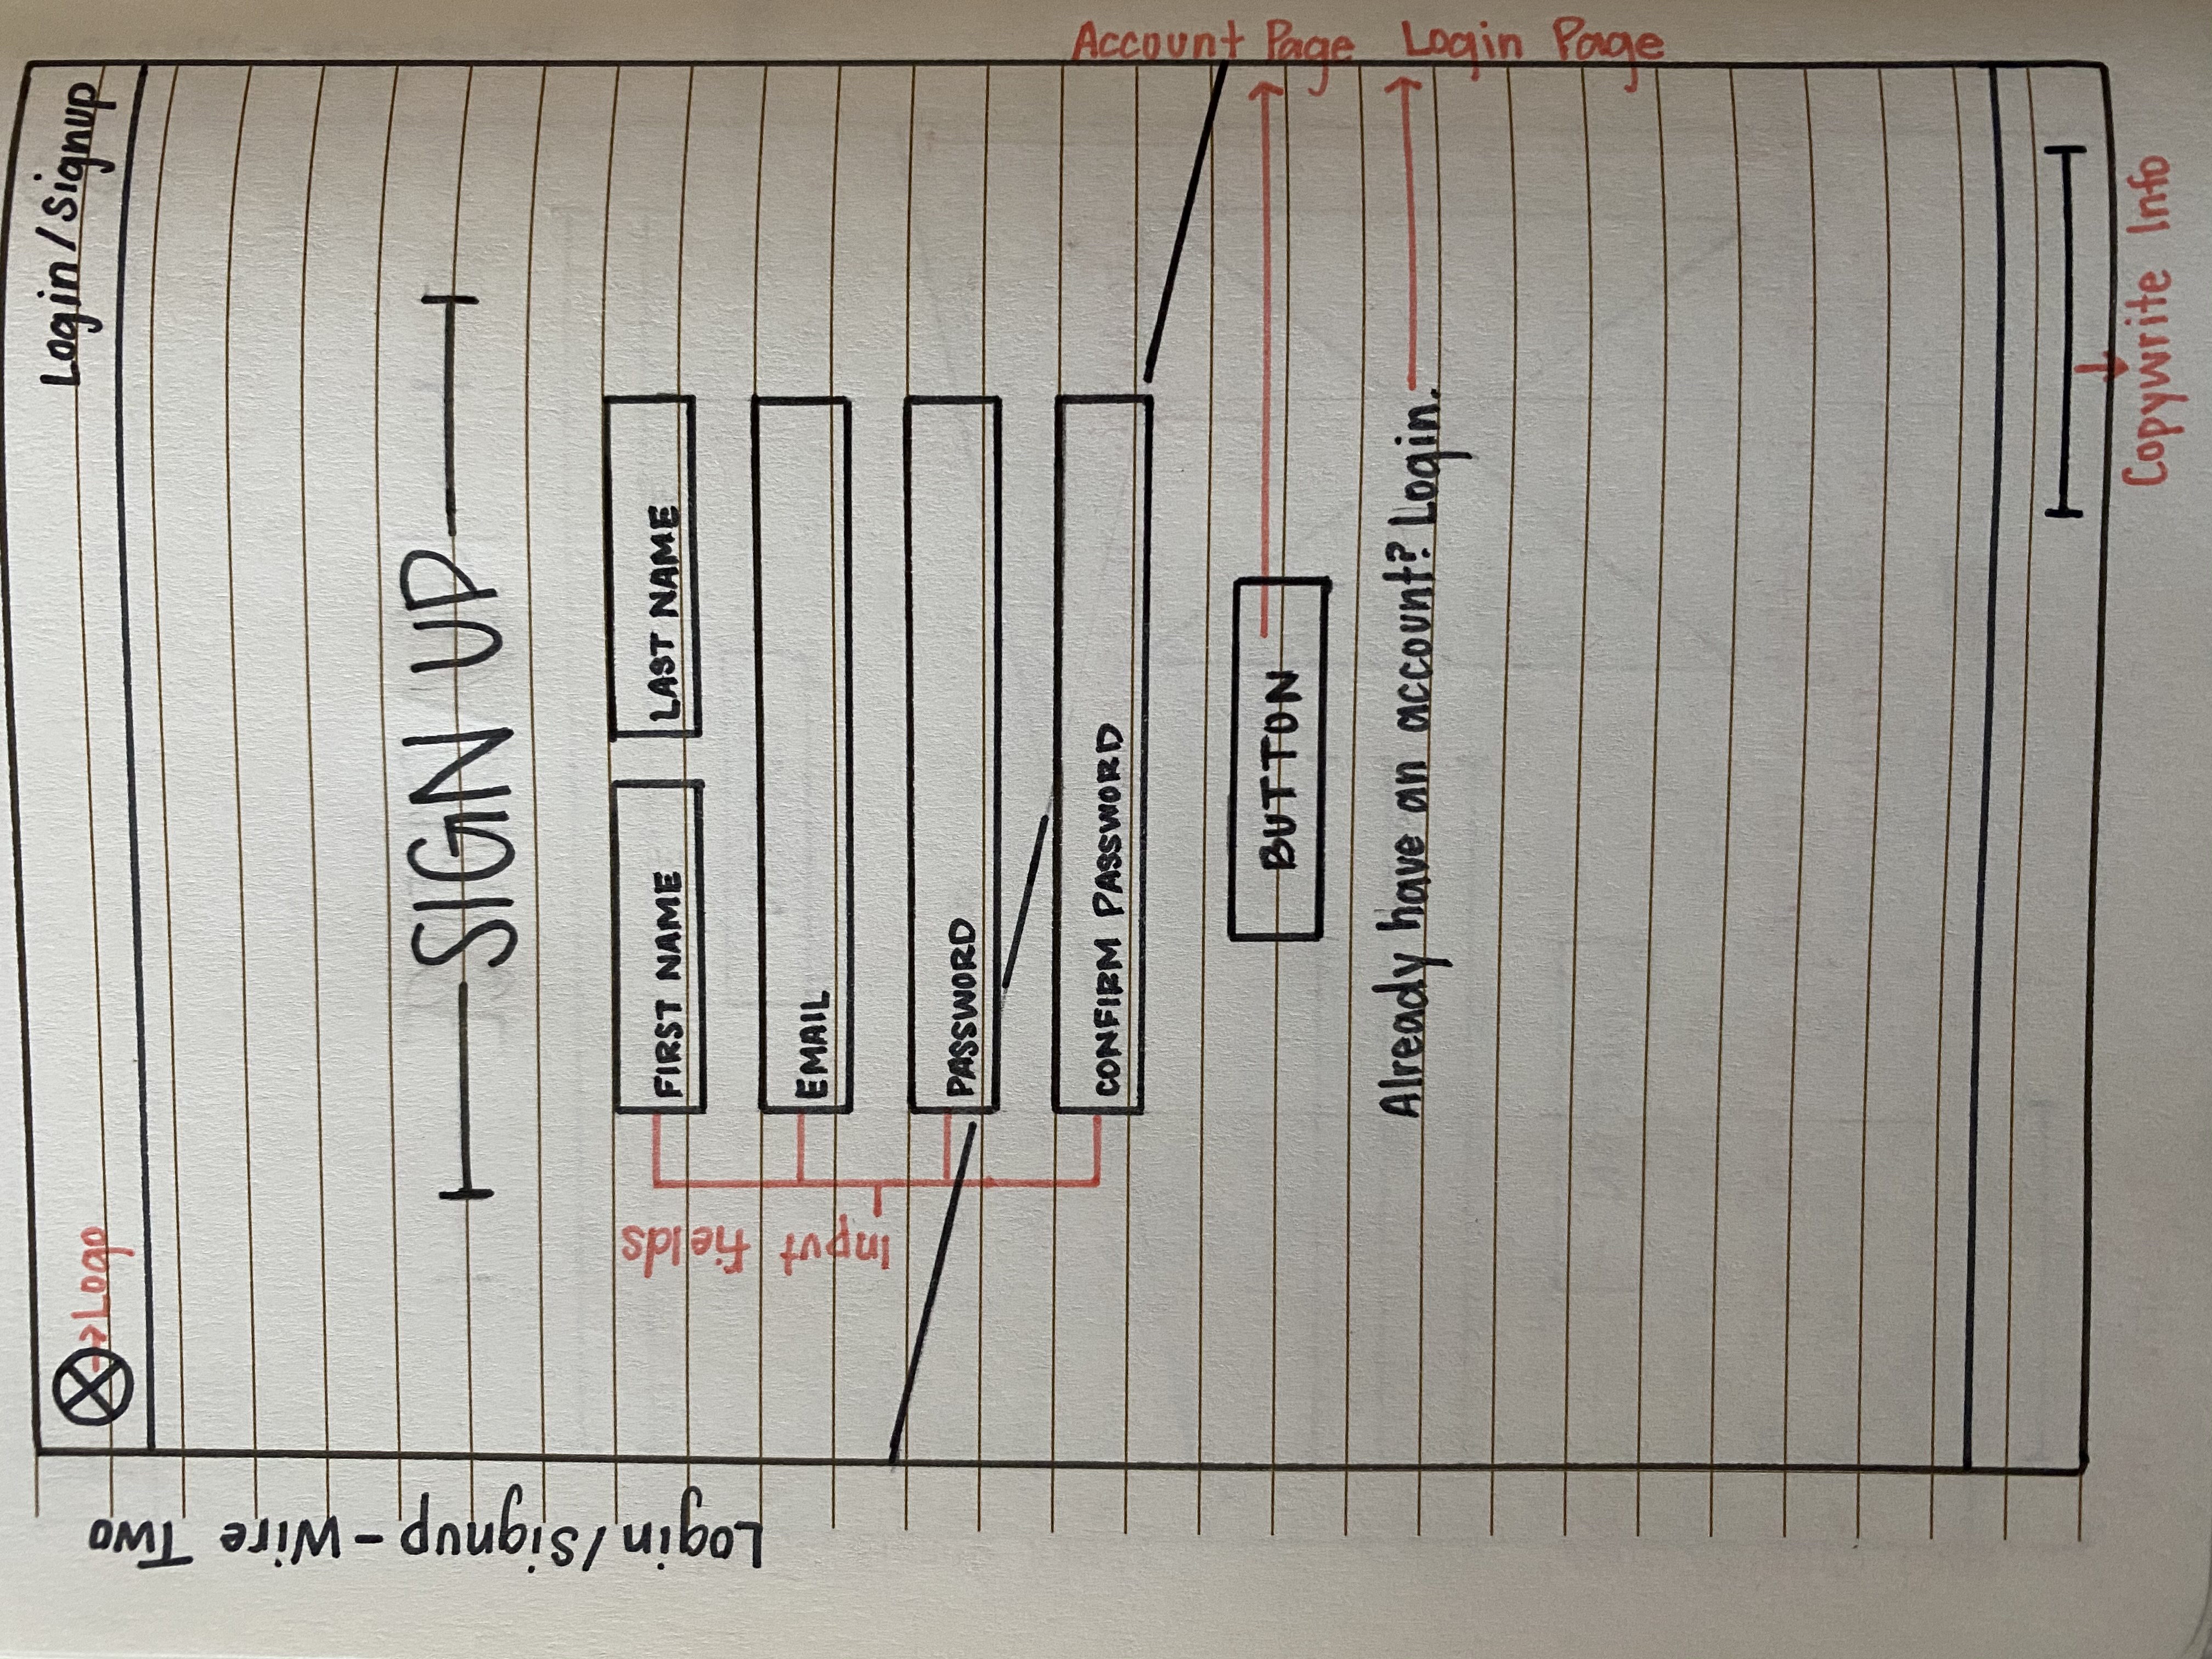 Login/Signup-Wire Two
Logo
Login/Signup
SIGN UP
Input fields
FIRST NAME
LAST NAME
EMAIL
PASSWORD
CONFIRM PASSWORD
BUTTON
Account Page
Already have an account? Login.
Login Page
Copywrite Info